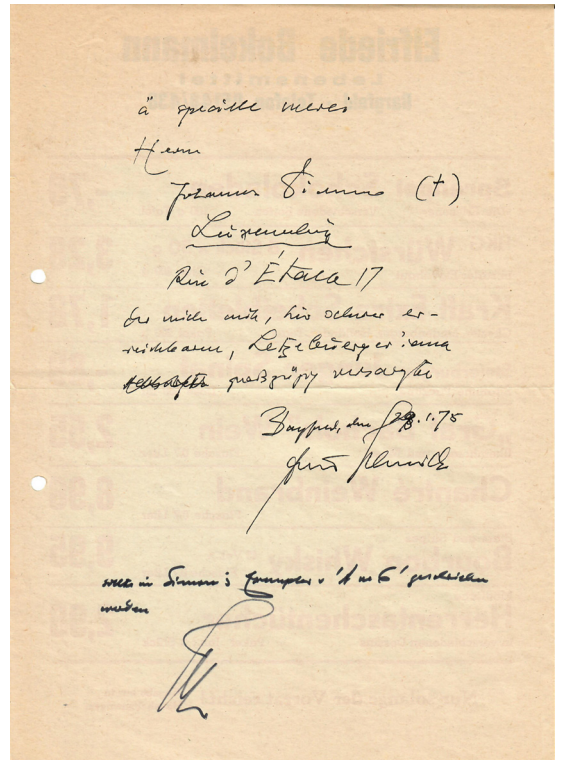 à speciell merci
Herrn
Johannes Simon (†)
Luxemburg
Rue d'Étalle 17
der mich mit, hier schwer er-
reichbaren, 'Letzebuerger'iana
großzügig versorgte
Bargfeld, den 28.1.75
Arno Schmidt
sollte in Simon's Exemplar v 'A m G' geschrieben
werden